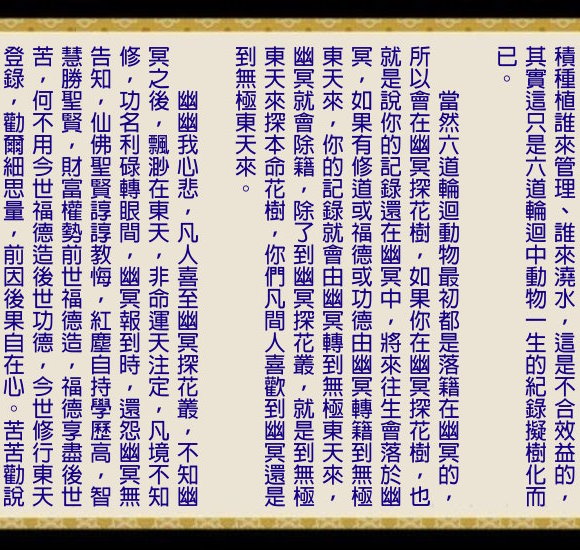 積種植誰來管理、誰來澆水，這是不合效益的，
其實這只是六道輪迴中動物一生的紀錄擬樹化而
已。
當然六道輪迴動物最初都是落籍在幽冥的，
所以會在幽冥探花樹，如果你在幽冥探花樹，也
就是說你的記錄還在幽冥中，將來往生會落於幽
冥，如果有修道或福德或功德由幽冥轉籍到無極
東天來，你的記錄就會由幽冥轉到無極東天來，
幽冥就會除籍，除了到幽冥探花叢，就是到無極
東天來探本命花樹，你們凡間人喜歡到幽冥還是
到無極東天來。
幽幽我心悲，凡人喜至幽冥探花叢，不知幽
冥之後，飄渺在東天，非命運天注定，凡境不知
修，功名利碌轉眼間，幽冥報到時，還怨幽冥無
告知，仙佛聖賢諄諄教悔，紅塵自持學歷高，智
慧勝聖賢，財富權勢前世福德造，福德享盡後世
苦，何不用今世福德造後世功德，今世修行東天
登錄，勸爾細思量，前因後果自在心。苦苦勸說